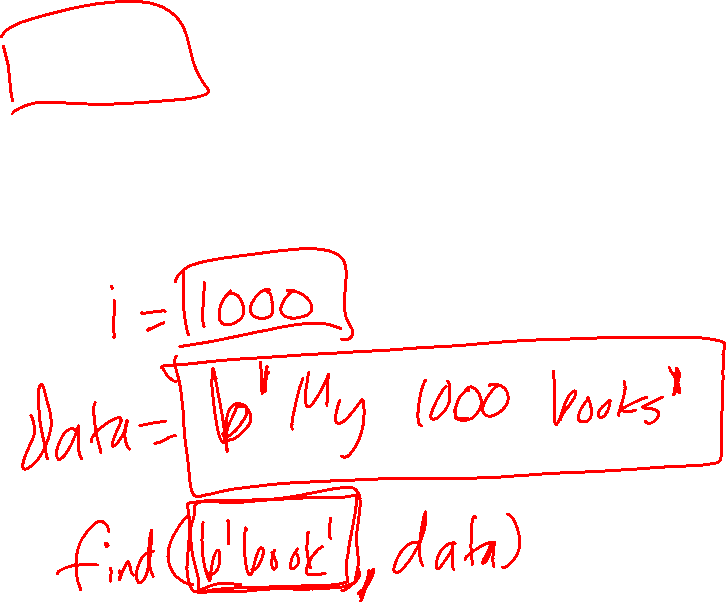 i = 1000
data = b'My 1000 books'
find(b'book', data)